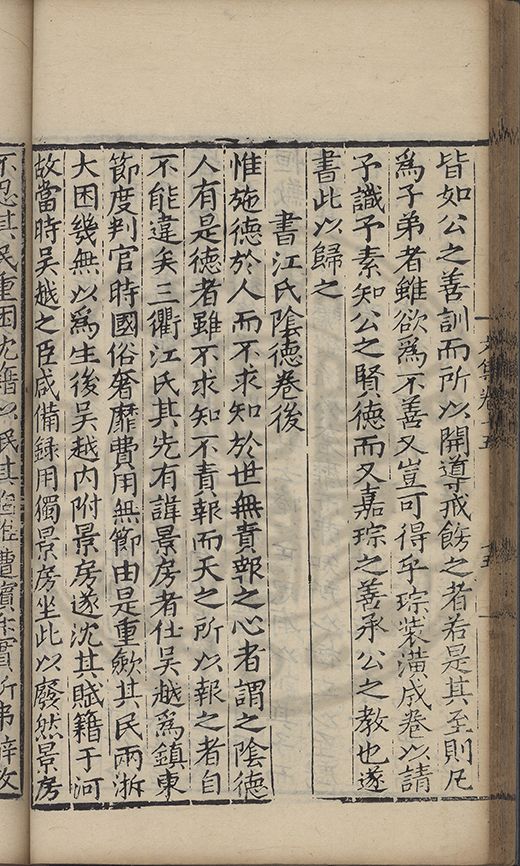 皆如公之善訓而所以開導戒飭之者若是其至則凡
為子弟者雖欲為不善又豈可得乎琮裝潢成卷以請
予識予素知公之賢德而又嘉琮之善承公之教也遂
書此以歸之
書江氏陰德卷後
惟施德於人而不求知於世無責報之心者謂之陰德
人有是德者雖不求知不責報而天之所以報之者自
不能違矣三衢江氏其先有諱景房者仕吳越為鎮東
節度判官時國俗奢靡費用無節由是重歛其民兩浙
大困幾無以爲生後吳越內附景房遂沈其賦籍于河
故當時吳越之臣咸備録用獨景房坐此以廢然景房
不忍其民重困沈籍以